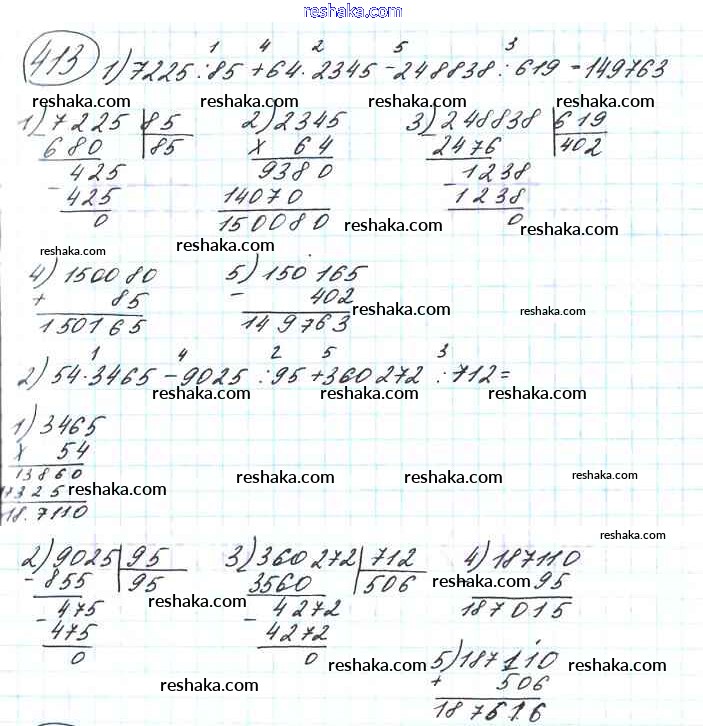 reshaka.com
413 1) 7225 : 85 + 64 · 2345 - 248838 : 619 = 149763
1 4 2 5 3
reshaka.com reshaka.com reshaka.com reshaka.com
1) 7225 | 85
- 680 | 85
425
- 425
0
2) 2345
x 64
9380
14070
150080
3) 248838 | 619
- 2476 | 402
1238
- 1238
0
reshaka.com reshaka.com
reshaka.com reshaka.com reshaka.com
4) 150080
+ 85
150165
5) 150165
- 402
149763
reshaka.com reshaka.com
1 4 2 5 3
2) 54 · 3465 - 9025 : 95 + 360272 : 712 =
reshaka.com reshaka.com reshaka.com
1) 3465
x 54
13860
17325
18.7110
reshaka.com reshaka.com reshaka.com reshaka.com
reshaka.com
2) 9025 | 95
- 855 | 95
475
- 475
0
3) 360272 | 712
3560 | 506
- 4272
4272
0
4) 187110
95
187015
reshaka.com reshaka.com
5) 187110
+ 506
187616
reshaka.com reshaka.com reshaka.com